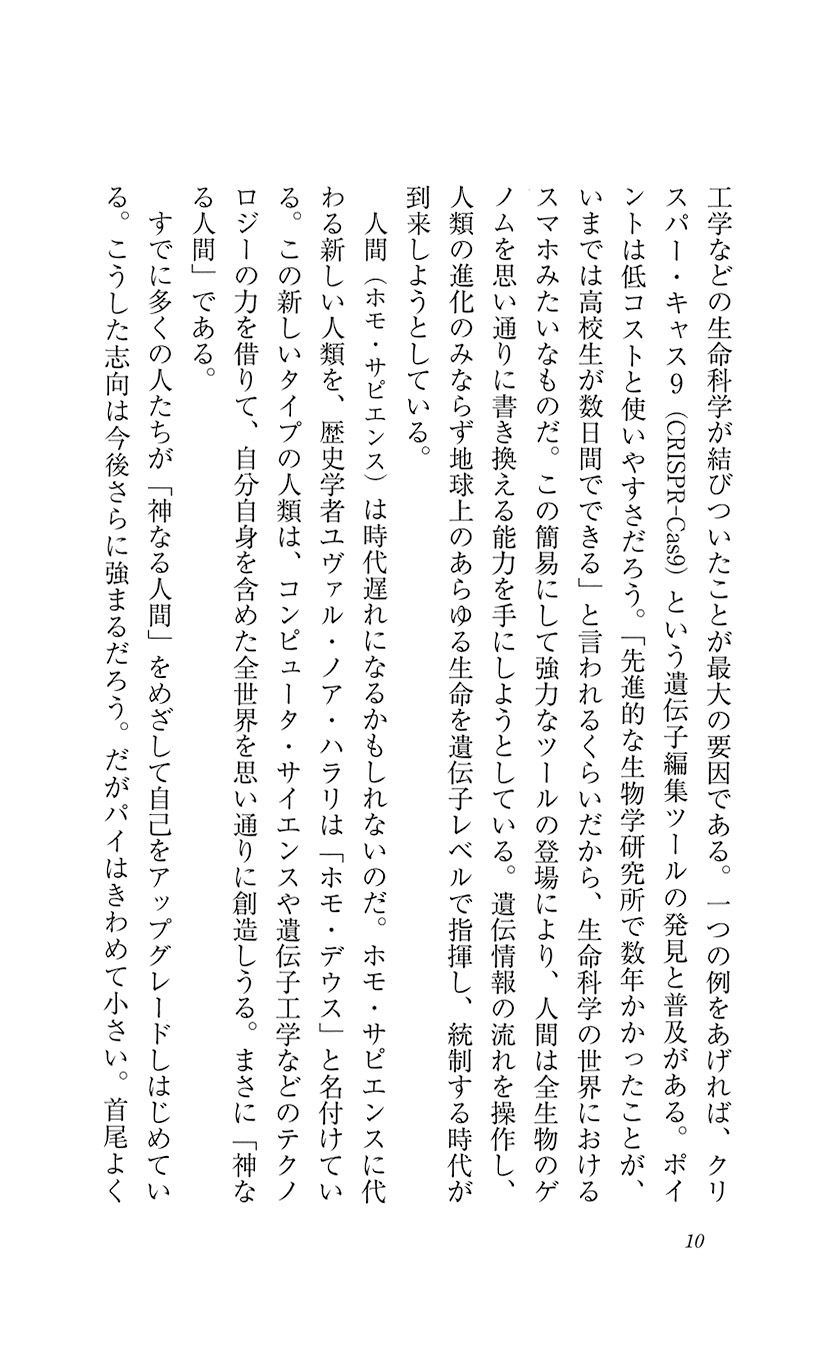 工学などの生命科学が結びついたことが最大の要因である。一つの例をあげれば、クリ
スパー・キャス9（CRISPR-Cas9）という遺伝子編集ツールの発見と普及がある。ポイ
ントは低コストと使いやすさだろう。「先進的な生物学研究所で数年かかったことが、
いまでは高校生が数日間でできる」と言われるくらいだから、生命科学の世界における
スマホみたいなものだ。この簡易にして強力なツールの登場により、人間は全生物のゲ
ノムを思い通りに書き換える能力を手にしようとしている。遺伝情報の流れを操作し、
人類の進化のみならず地球上のあらゆる生命を遺伝子レベルで指揮し、統制する時代が
到来しようとしている。
人間（ホモ・サピエンス）は時代遅れになるかもしれないのだ。ホモ・サピエンスに代
わる新しい人類を、歴史学者ユヴァル・ノア・ハラリは「ホモ・デウス」と名付けてい
る。この新しいタイプの人類は、コンピュータ・サイエンスや遺伝子工学などのテクノ
ロジーの力を借りて、自分自身を含めた全世界を思い通りに創造しうる。まさに「神な
る人間」である。
すでに多くの人たちが「神なる人間」をめざして自己をアップグレードしはじめてい
る。こうした志向は今後さらに強まるだろう。だがパイはきわめて小さい。首尾よく
10